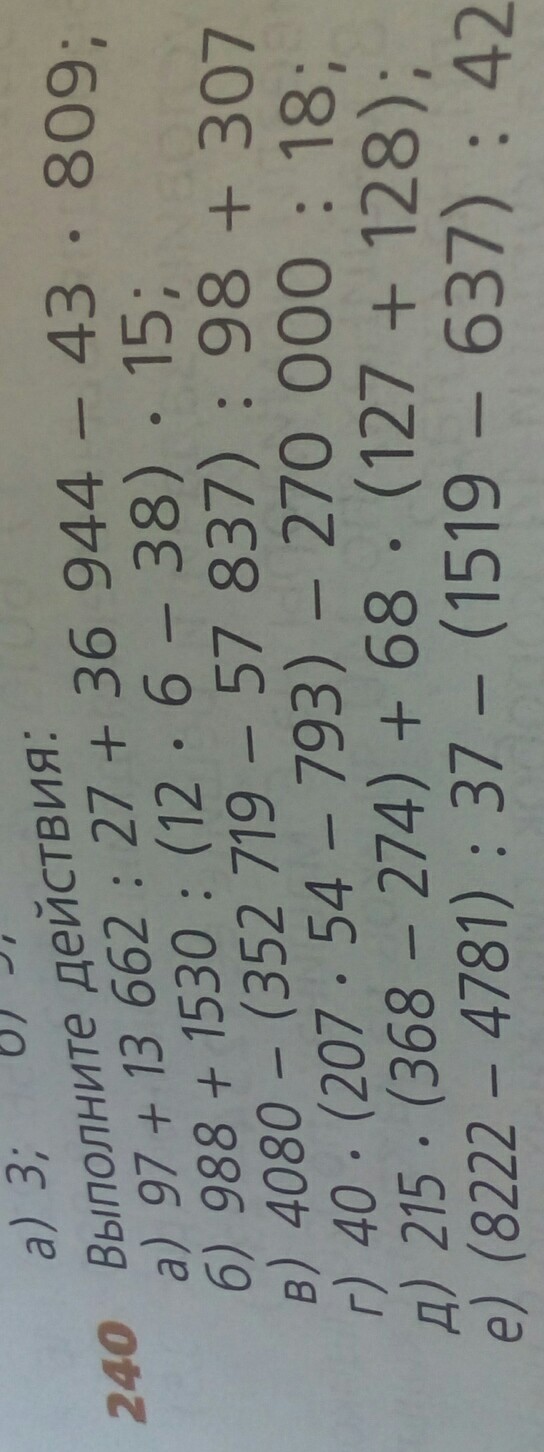 а) 3;
240 Выполните действия:
а) 97 + 13 662 : 27 + 36 944 – 43 · 809;
б) 988 + 1530 : (12 · 6 – 38) · 15;
в) 4080 – (352 719 – 57 837) : 98 + 307
г) 40 · (207 · 54 – 793) – 270 000 : 18;
д) 215 · (368 – 274) + 68 · (127 + 128);
е) (8222 – 4781) : 37 – (1519 – 637) : 42